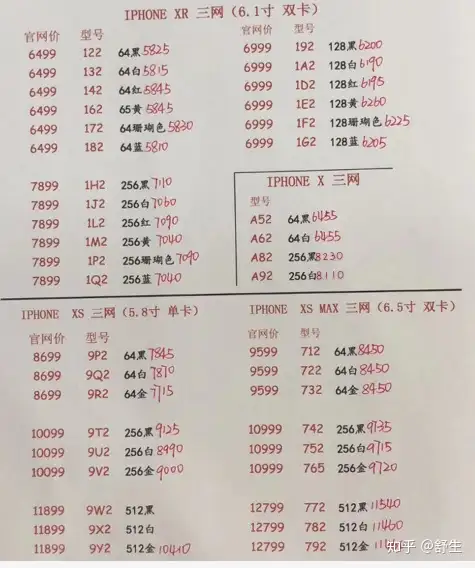 IPHONE XR 三网(6.1寸 双卡)
官网价 型号
6499 122 64黑5825
6499 132 64白5815
6499 142 64红5845
6499 162 65黄5845
6499 172 64珊瑚色5830
6499 182 64蓝5810
7899 1H2 256黑7110
7899 1J2 256白7060
7899 1L2 256红7090
7899 1M2 256黄7040
7899 1P2 256珊瑚色7090
7899 1Q2 256蓝7040
官网价 型号
6999 192 128黑6200
6999 1A2 128白6190
6999 1D2 128红6195
6999 1E2 128黄6260
6999 1F2 128珊瑚色6225
6999 1G2 128蓝6205
IPHONE X 三网
型号
A52 64黑6455
A62 64白6455
A82 256黑8230
A92 256白8110
IPHONE XS 三网(5.8寸 单卡)
官网价 型号
8699 9P2 64黑7845
8699 9Q2 64白7870
8699 9R2 64金7715
10099 9T2 256黑9125
10099 9U2 256白8990
10099 9V2 256金9000
11899 9W2 512黑
11899 9X2 512白
11899 9Y2 512金10410
IPHONE XS MAX 三网(6.5寸 双卡)
官网价 型号
9599 712 64黑8450
9599 722 64白8450
9599 732 64金8450
10999 742 256黑9735
10999 752 256白9715
10999 765 256金9720
12799 772 512黑11540
12799 782 512白11460
12799 792 512金
知乎 @舒生